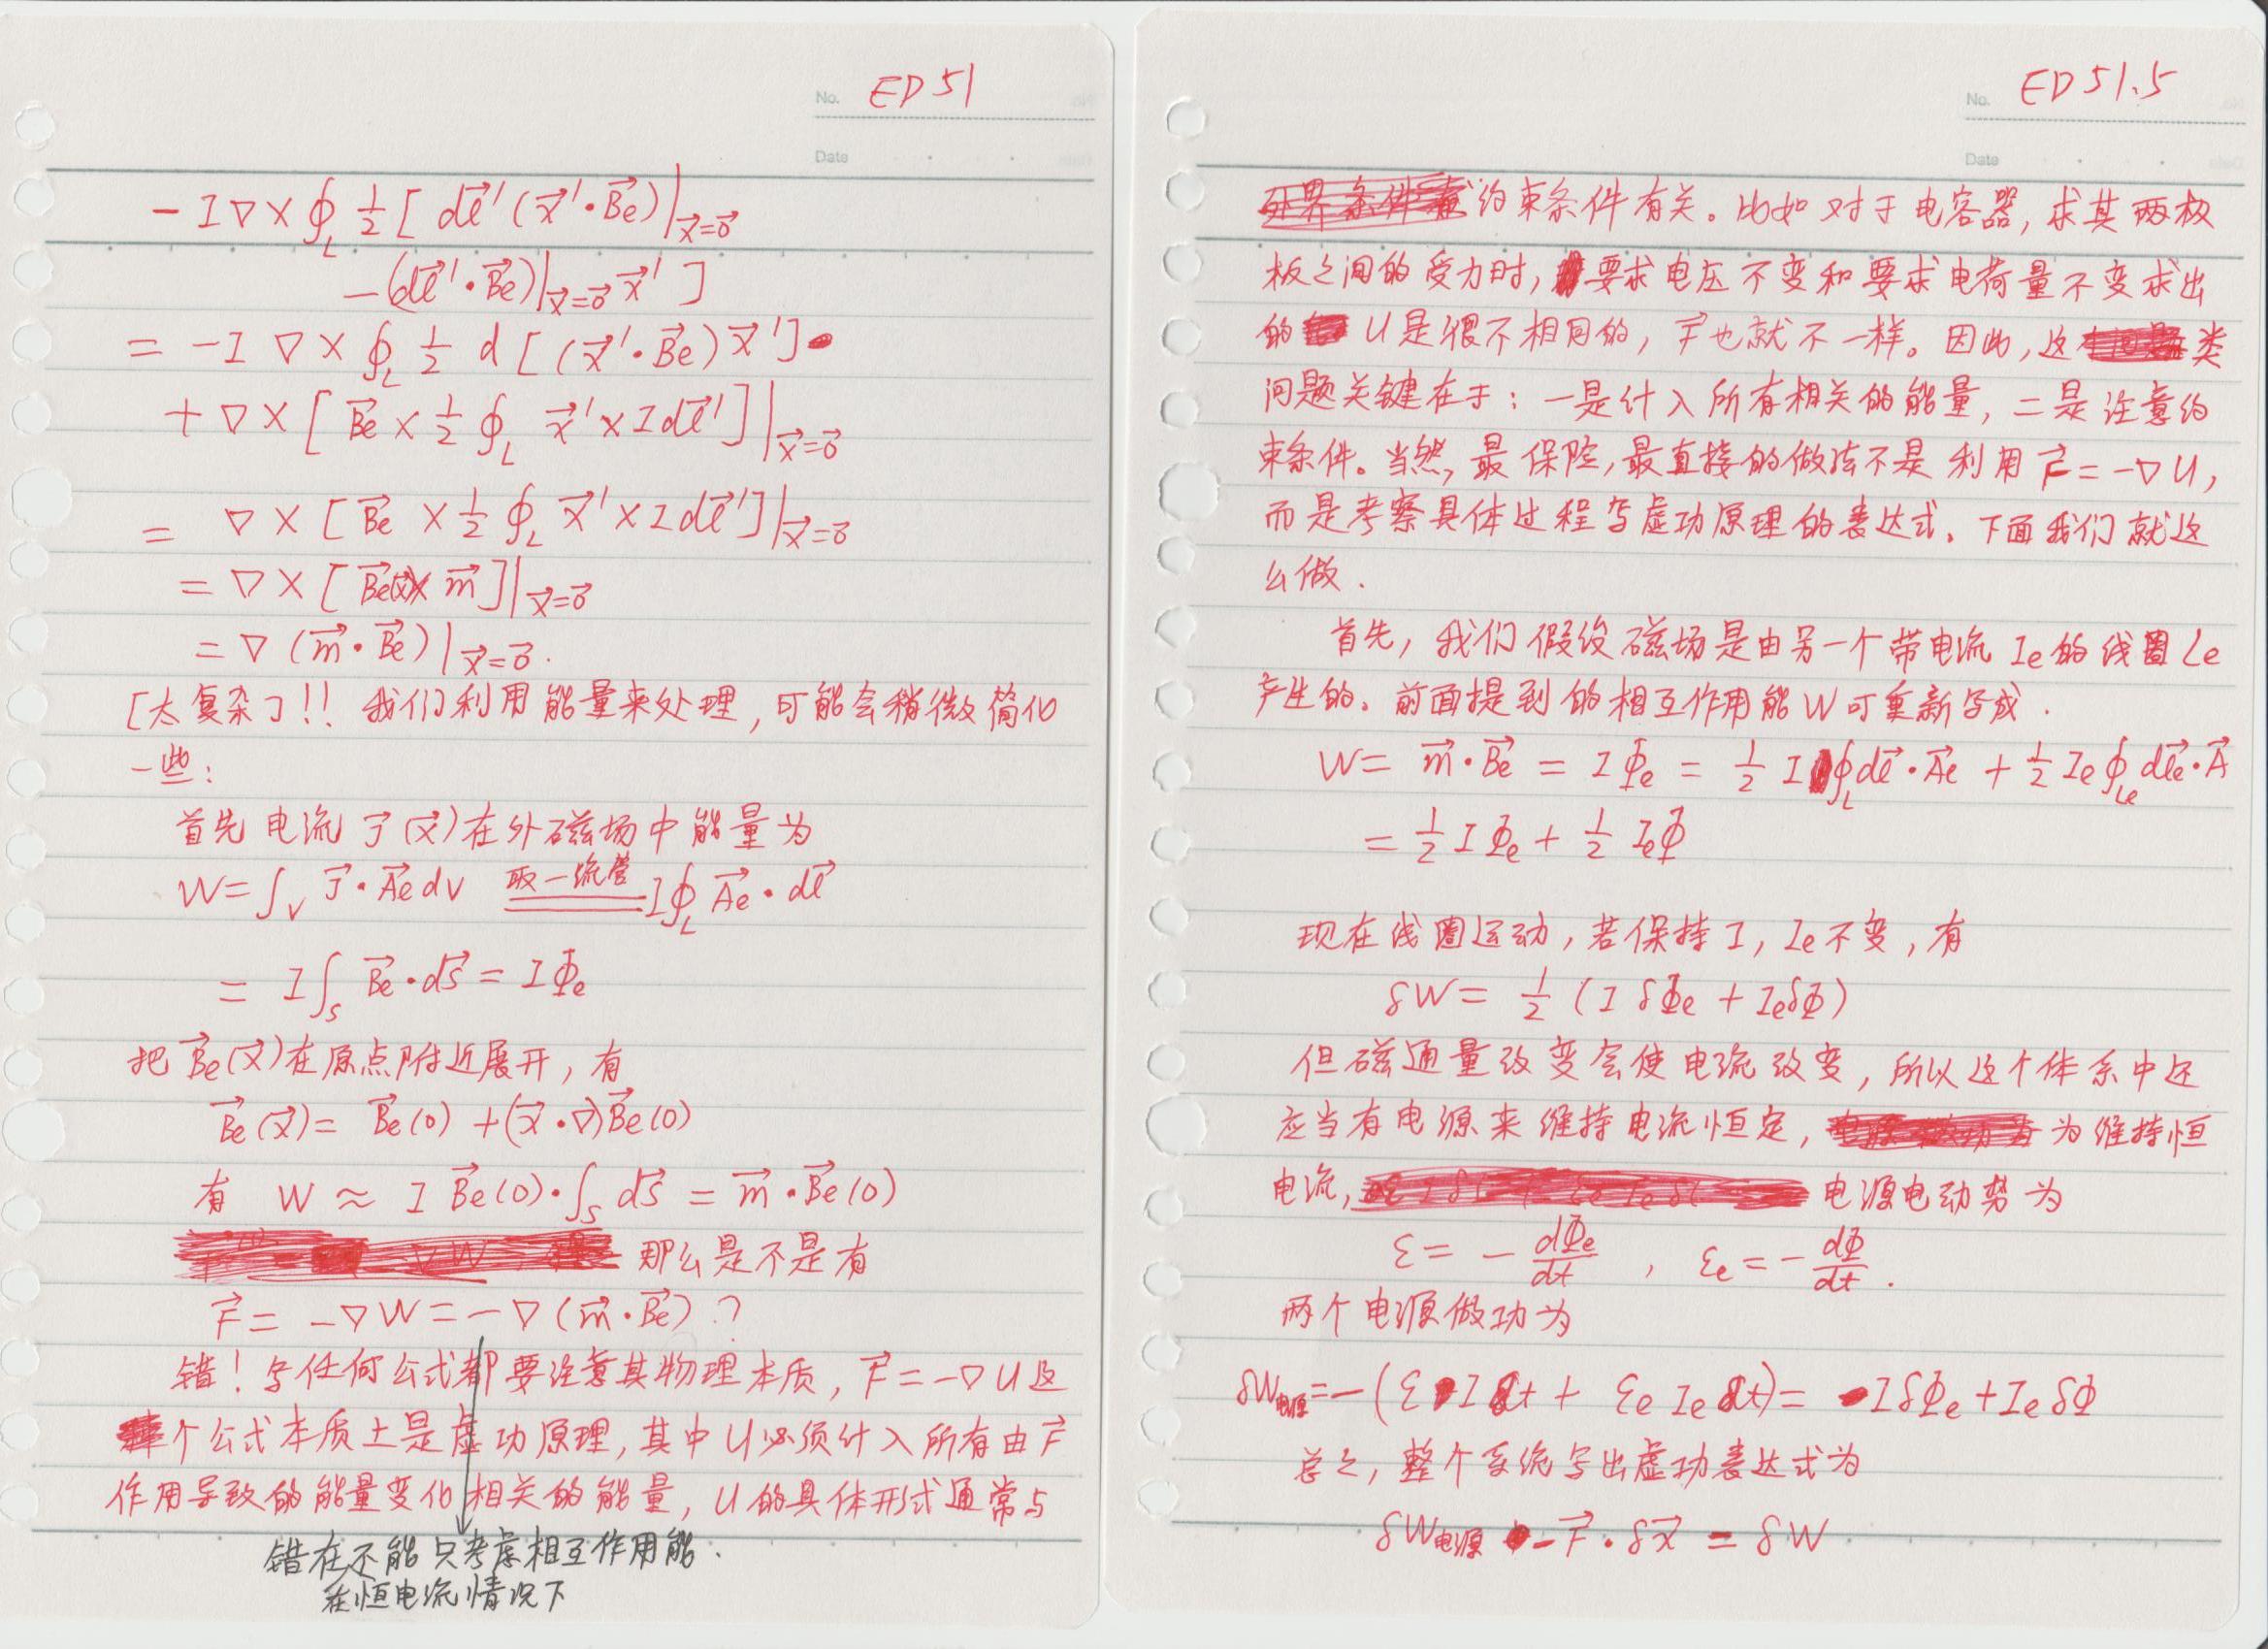 No. ED 51
Date
− I ∇ × ∮_L ½ [ dl⃗′ (x⃗′·B⃗e)|_{x⃗=0⃗}
− (dl⃗′·B⃗e)|_{x⃗=0⃗} x⃗′ ]
= − I ∇ × ∮_L ½ d [ (x⃗′·B⃗e) x⃗′ ]
+ ∇ × [ B⃗e × ½ ∮_L x⃗′ × I dl⃗′ ]|_{x⃗=0⃗}
= ∇ × [ B⃗e × ½ ∮_L x⃗′ × I dl⃗′ ]|_{x⃗=0⃗}
= ∇ × [ B⃗e(x⃗) × m⃗ ]|_{x⃗=0⃗}
= ∇ (m⃗·B⃗e)|_{x⃗=0⃗}.
[太复杂了!! 我们利用能量来处理,可能会稍微简化
一些:
首先电流 J⃗(x⃗)在外磁场中能量为
W = ∫_V J⃗·A⃗e dV 取一流管 = I ∮_L A⃗e·dl⃗
= I ∫_S B⃗e·dS⃗ = I Φe
把 B⃗e(x⃗)在原点附近展开,有
B⃗e(x⃗) = B⃗e(0) + (x⃗·∇)B⃗e(0)
有 W ≈ I B⃗e(0)·∫_S dS⃗ = m⃗·B⃗e(0)
那么是不是有
F⃗ = −∇W = −∇(m⃗·B⃗e) ?
错!写任何公式都要注意其物理本质, F⃗ = −∇U 这
个公式本质上是虚功原理,其中U必须计入所有由F⃗
作用导致的能量变化相关的能量, U的具体形式通常与
错在不能只考虑相互作用能.
在恒电流情况下
No. ED 51.5
Date
约束条件有关。比如对于电容器,求其两极
板之间的受力时,要求电压不变和要求电荷量不变求出
的 U是很不相同的, F⃗也就不一样。因此,这类
问题关键在于:一是计入所有相关的能量,二是注意约
束条件。当然,最保险,最直接的做法不是利用 F⃗ = −∇U,
而是考察具体过程写虚功原理的表达式。下面我们就这
么做.
首先,我们假设磁场是由另一个带电流 Ie的线圈 Le
产生的。前面提到的相互作用能W可重新写成.
W = m⃗·B⃗e = I Φe = ½ I ∮_L dl⃗·A⃗e + ½ Ie ∮_{Le} dl⃗e·A⃗
= ½ I Φe + ½ Ie Φ
现在线圈运动,若保持 I, Ie不变,有
δW = ½ (I δΦe + Ie δΦ)
但磁通量改变会使电流改变,所以这个体系中还
应当有电源来维持电流恒定,为维持恒
电流,电源电动势为
ε = − dΦe/dt , εe = − dΦ/dt .
两个电源做功为
δW电源 = −(ε I δt + εe Ie δt) = I δΦe + Ie δΦ
总之,整个系统写出虚功表达式为
δW电源 − F⃗·δx⃗ = δW